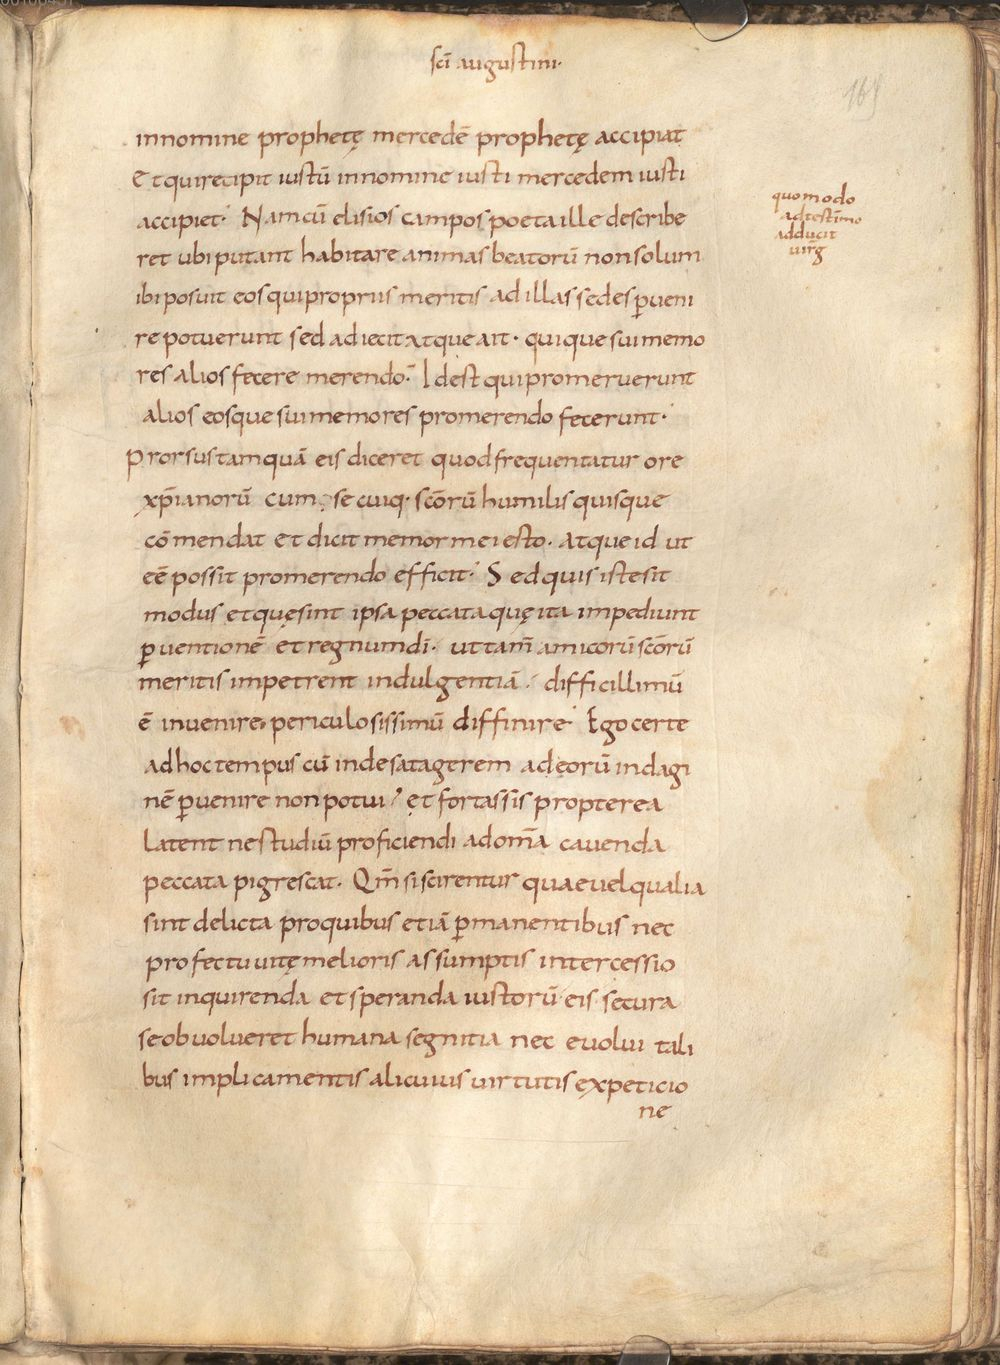 sci̅ augustini·
169
innomine prophetę mercedē prophetę accipiat
Et qui recipit iustū innomine iusti mercedem iusti
accipiet· Nam cū elisios campos poeta ille describe
ret ubi putant habitare animas beatorū non solum
ibi posuit eos qui propriis meritis ad illas sedes p̱ueni
re potuerunt sed adiecit atque ait· quique sui memo
res alios fecere merendo· Idest qui promeruerunt
alios eosque sui memores promerendo fecerunt·
Prorsus tamquā eis diceret quod frequentatur ore
xp̅ianorū cum se cuiq· scōrū humilis quisque
cōmendat et dicit memor mei esto· Atque id ut
eē possit promerendo efficit· Sed quis iste sit
modus et quę sint ipsa peccata quę ita impediunt
p̱uentionē et regnum dī· ut tam̅ amicorū scōrū
meritis impetrent indulgentiā· difficillimū
ē invenire· periculosissimū diffinire· Ego certe
ad hoc tempus cū inde satagerem ad eorū indagi
nē p̱uenire non potui· et fortassis propterea
latent ne studiū proficiendi ad om̅a cauenda
peccata pigrescat· Qm̅ si scirentur quae uel qualia
sint delicta pro quibus etiā p̱manentibus nec
profectu uitę melioris assumptis intercessio
sit inquirenda et speranda iustorū eis secura
se obuolueret humana segnitia nec euolui tali
bus implicamentis alicuius uirtutis expeticio
ne
quomodo
ad testimo
adducit
uirg̅